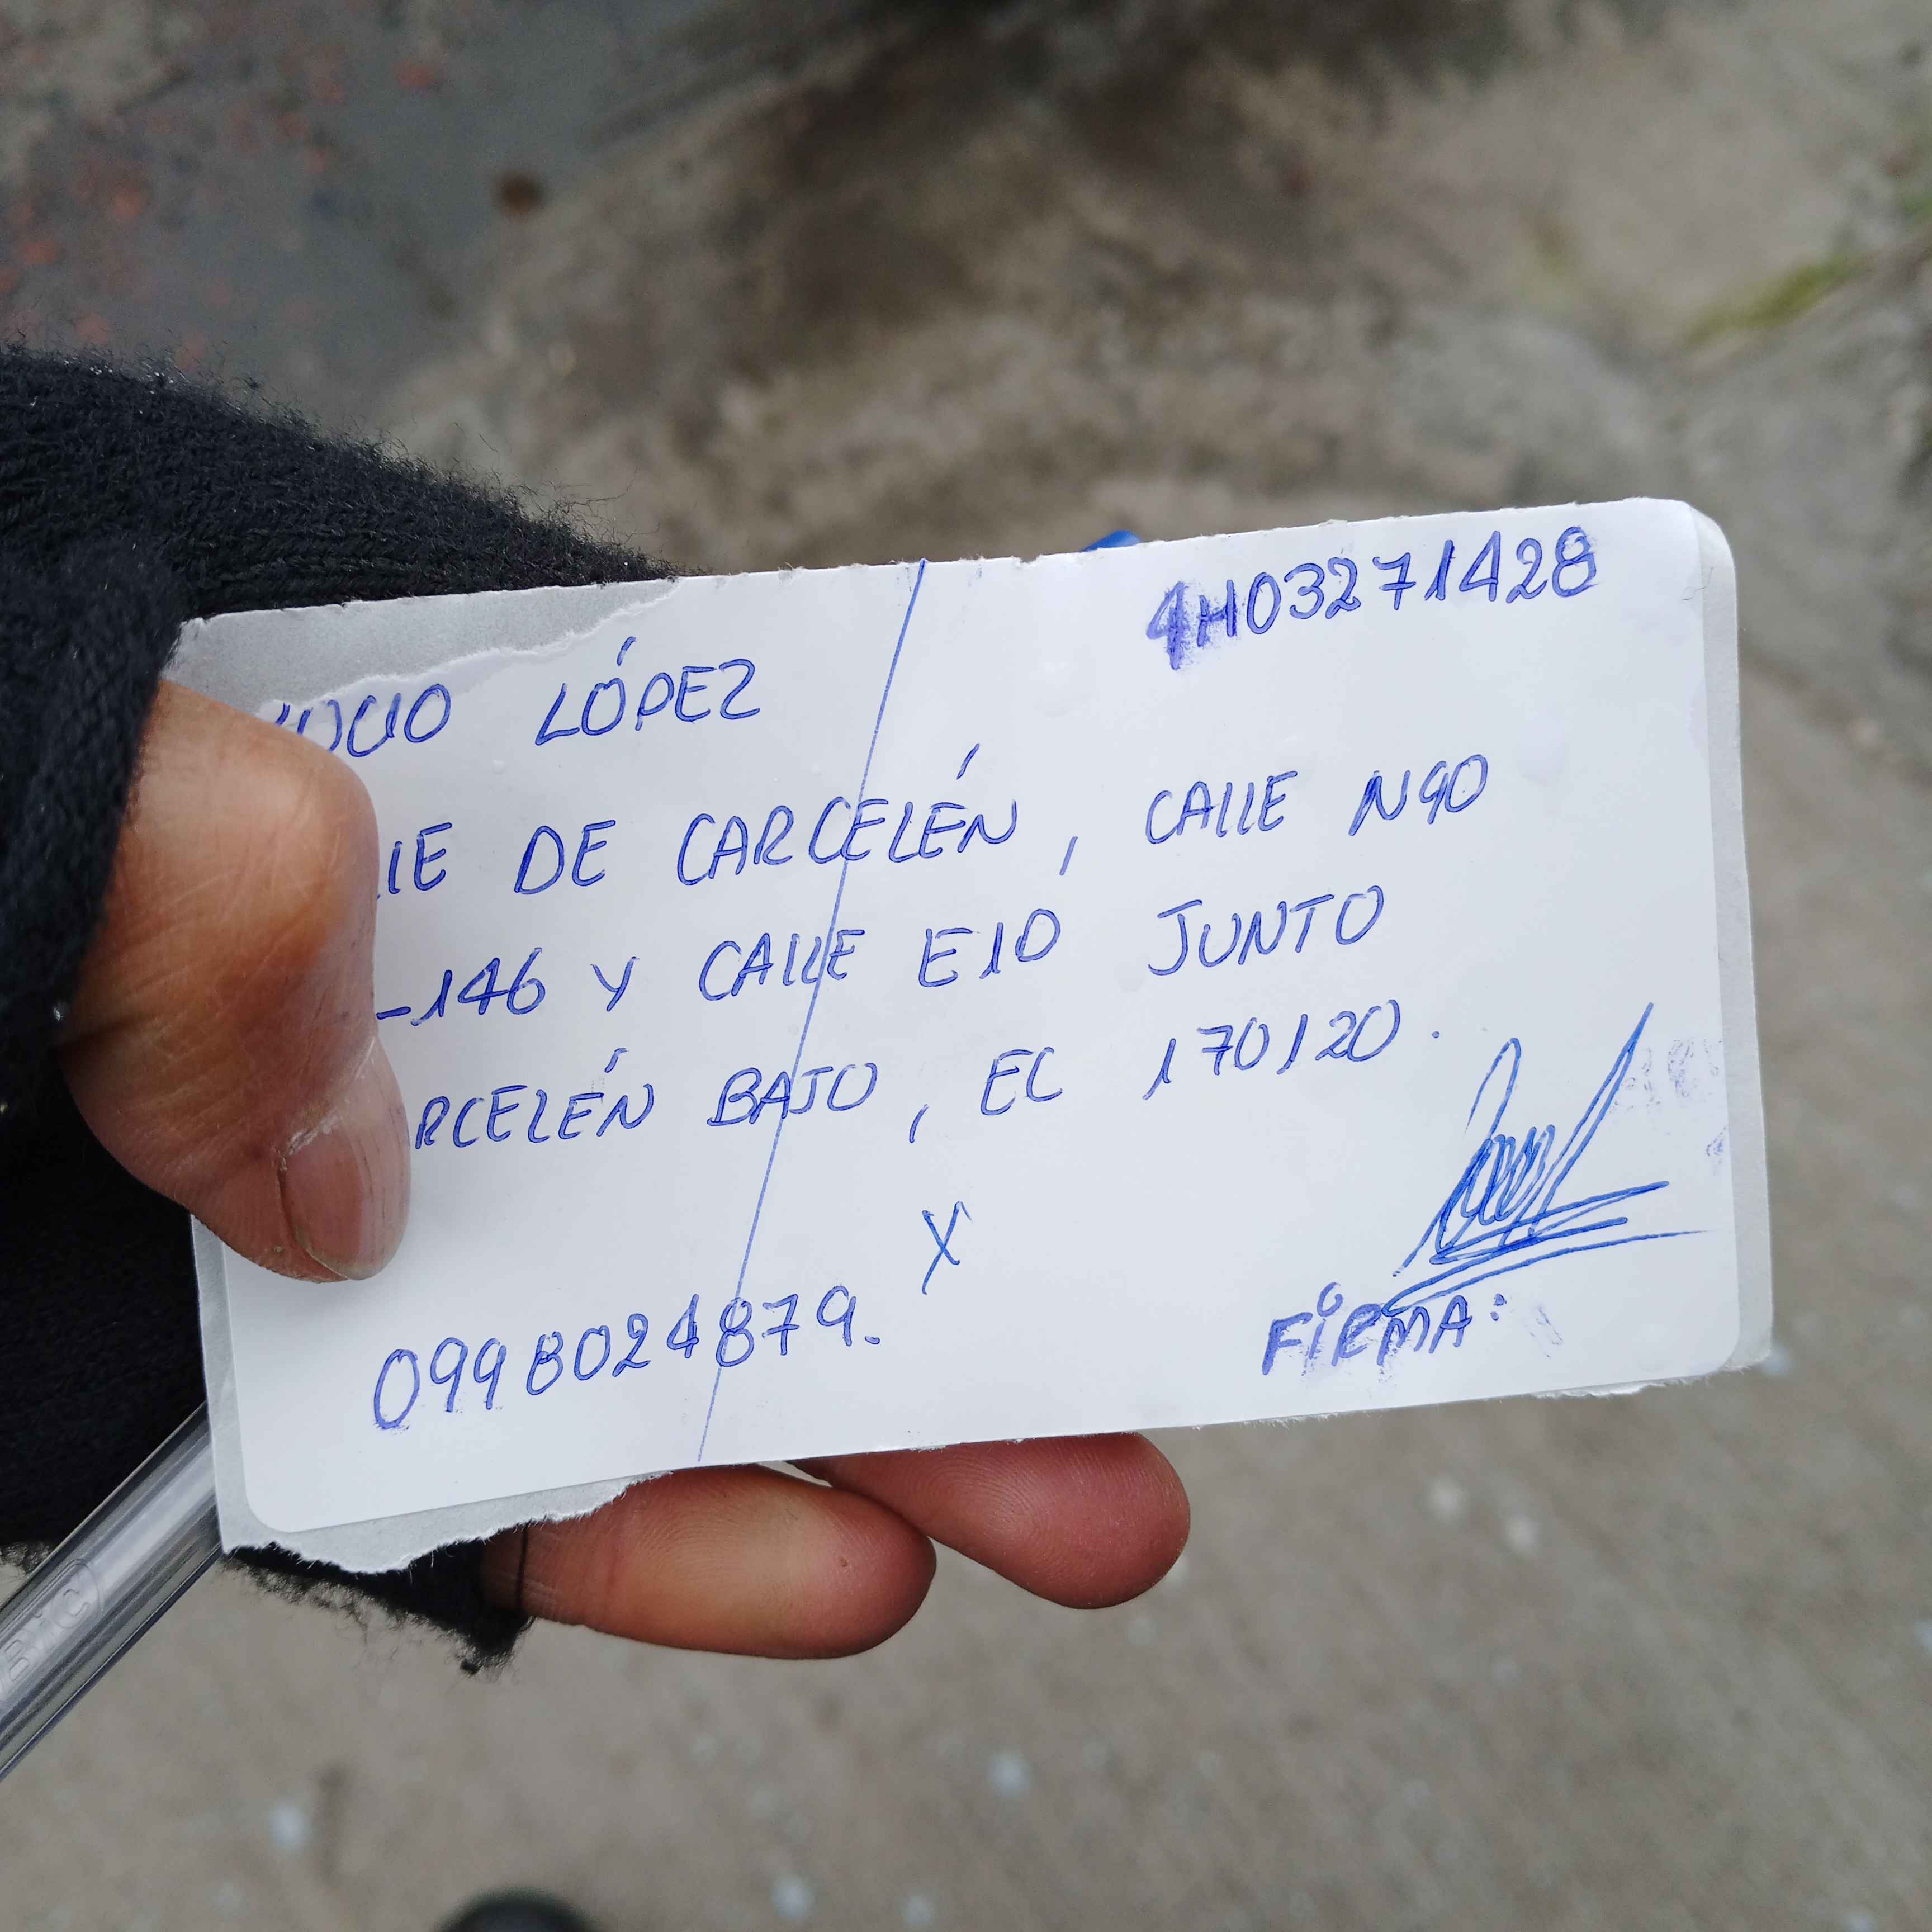 4H03271428
LÓPEZ
DE CARCELÉN, CALLE N90
-146 Y CALLE E10 JUNTO
RCELÉN BAJO, EC 170120.
X
0998024879.
FIRMA:
BIC